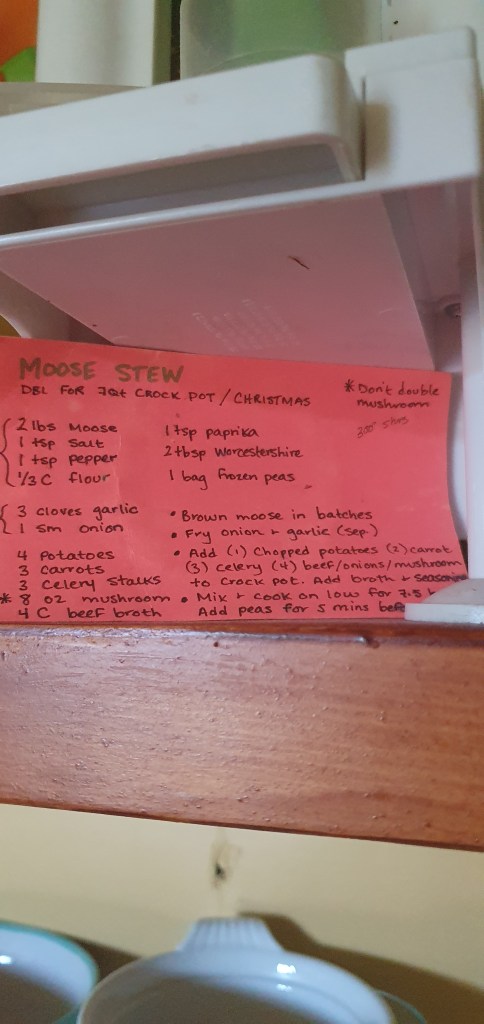 MOOSE STEW
DBL FOR 7Qt CROCK POT / CHRISTMAS
* Don't double
mushroom
2 lbs Moose
1 tsp Salt
1 tsp pepper
1/3 C flour
1 tsp paprika
2 tbsp Worcestershire
1 bag frozen peas
3 cloves garlic
1 sm onion
4 Potatoes
3 Carrots
3 Celery Stalks
* 8 oz mushroom
4 C beef broth
• Brown moose in batches
• Fry onion + garlic (sep.)
• Add (1) Chopped potatoes (2) carrot
(3) celery (4) beef/onions/mushroom
to crock pot. Add broth + seasoning
• Mix + cook on low for 7.5
Add peas for 5 mins